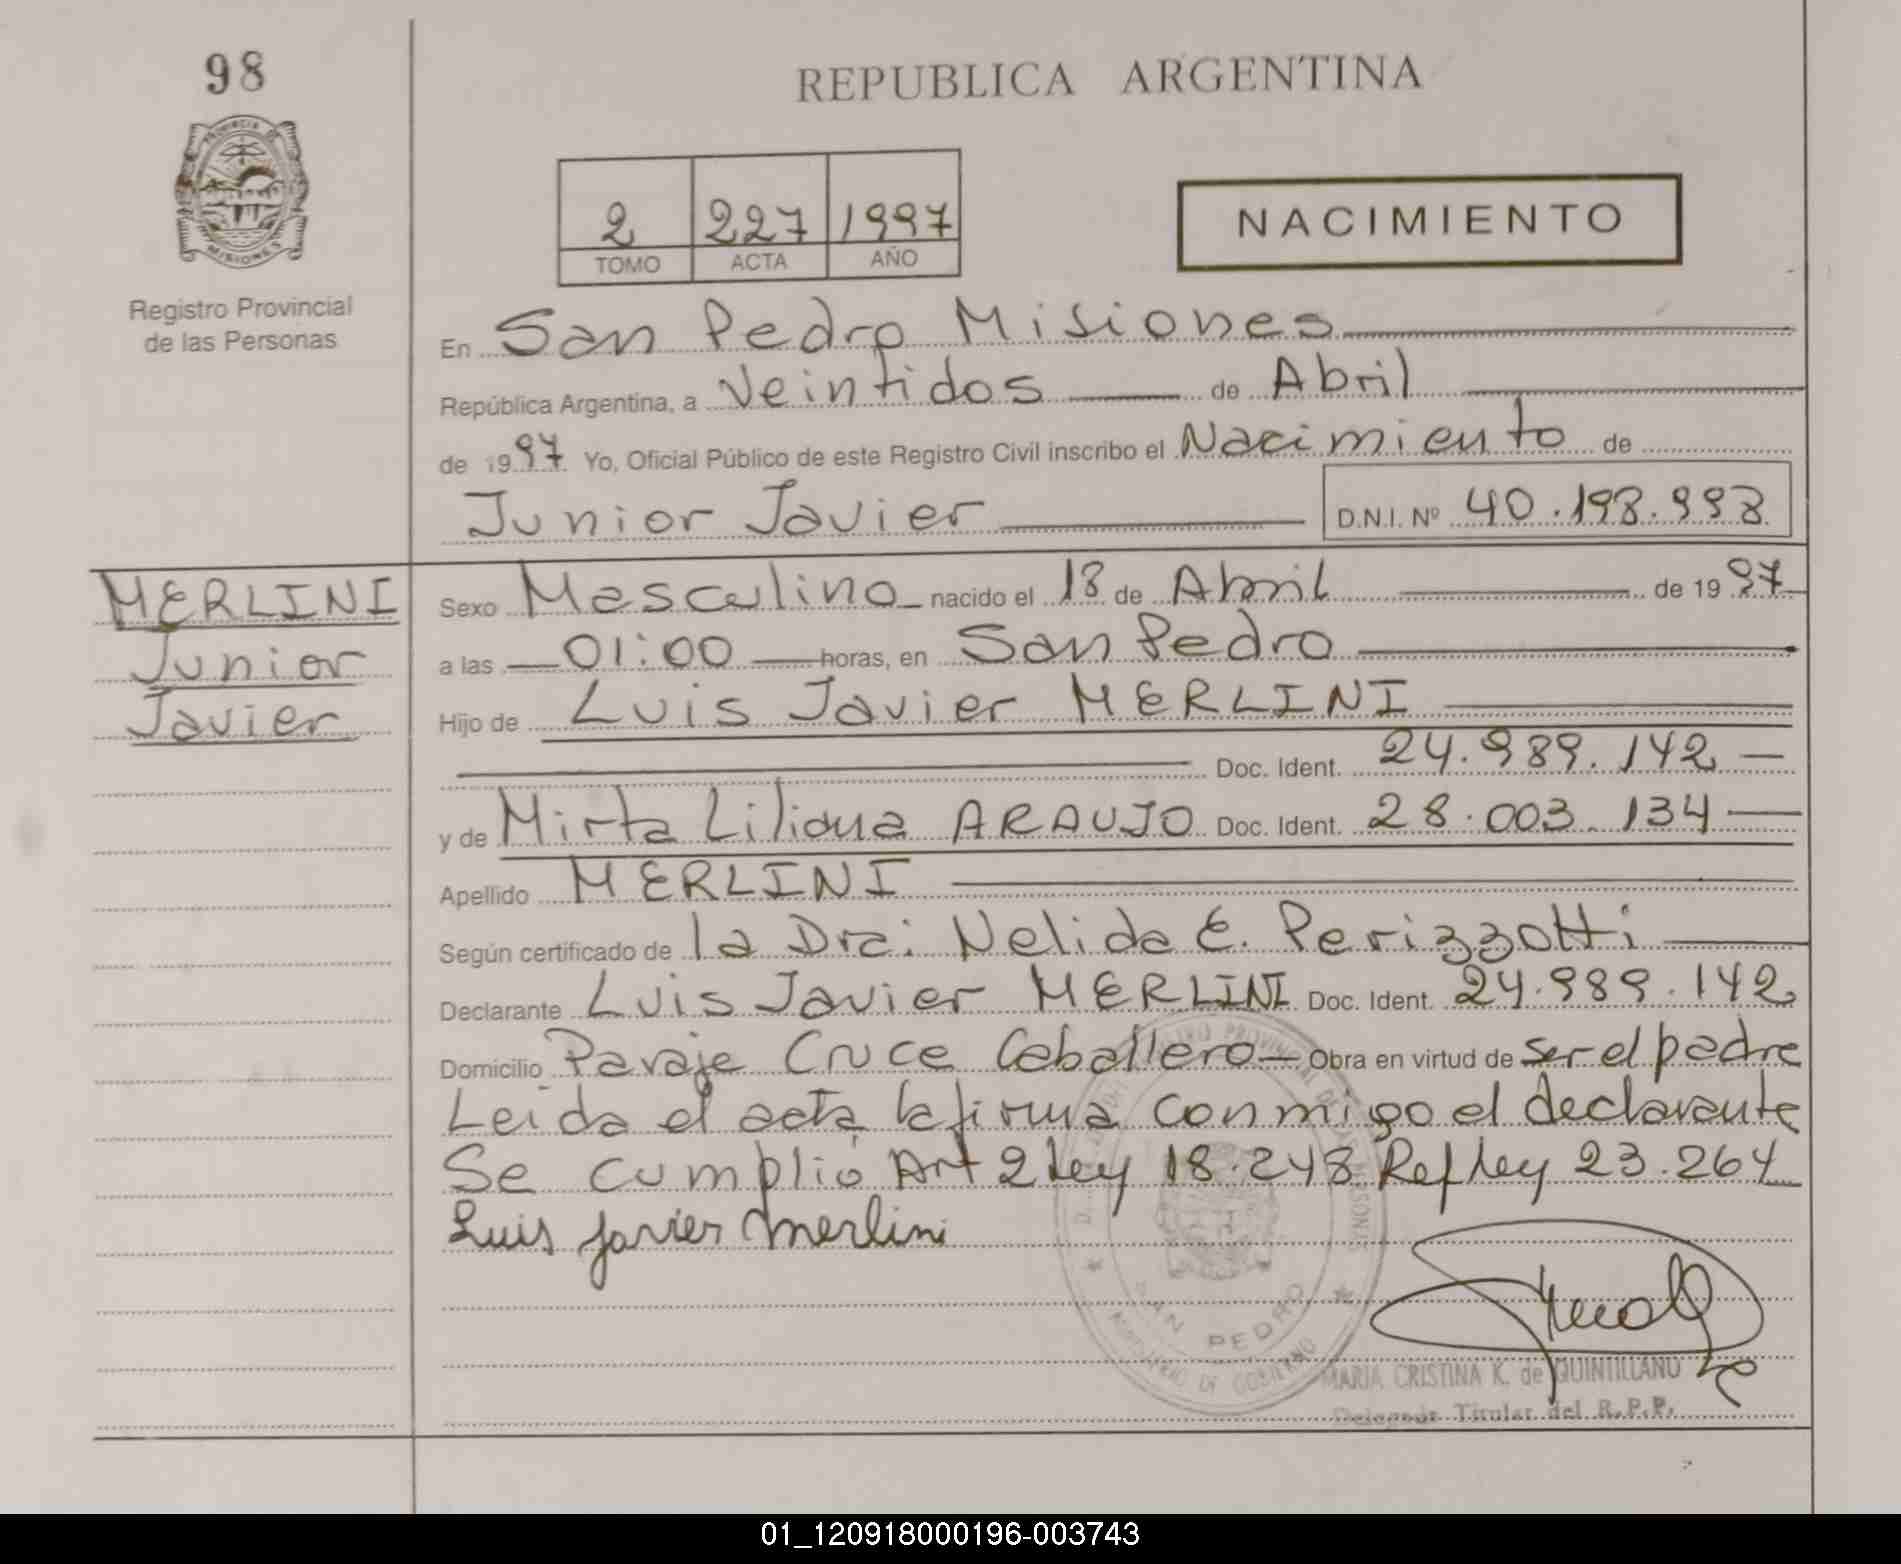 98
REPUBLICA ARGENTINA
PROVINCIA DE
MISIONES
2 227 1997
TOMO ACTA AÑO
NACIMIENTO
Registro Provincial
de las Personas
En San Pedro Misiones
República Argentina, a Veintidos de Abril
de 1997 Yo, Oficial Público de este Registro Civil inscribo el Nacimiento de
Junior Javier D.N.I. Nº 40.198.998
MERLINI
Junior
Javier
Sexo Masculino nacido el 18 de Abril de 1997
a las 01:00 horas, en San Pedro
Hijo de Luis Javier MERLINI
Doc. Ident. 24.989.142
y de Mirta Liliana ARAUJO Doc. Ident. 28.003.134
Apellido MERLINI
Según certificado de la Dra: Nelida E. Perizzotti
Declarante Luis Javier MERLINI Doc. Ident. 24.989.142
Domicilio Paraje Cruce Caballero Obra en virtud de ser el padre
Leida el acta la firma conmigo el declarante
Se cumplió Art 2 Ley 18.248 Ref Ley 23.264
Luis Javier Merlini
SAN PEDRO
MINISTERIO DE GOBIERNO
MARIA CRISTINA K. de QUINTILLANO
Delegada Titular del R.P.P.
01_120918000196-003743